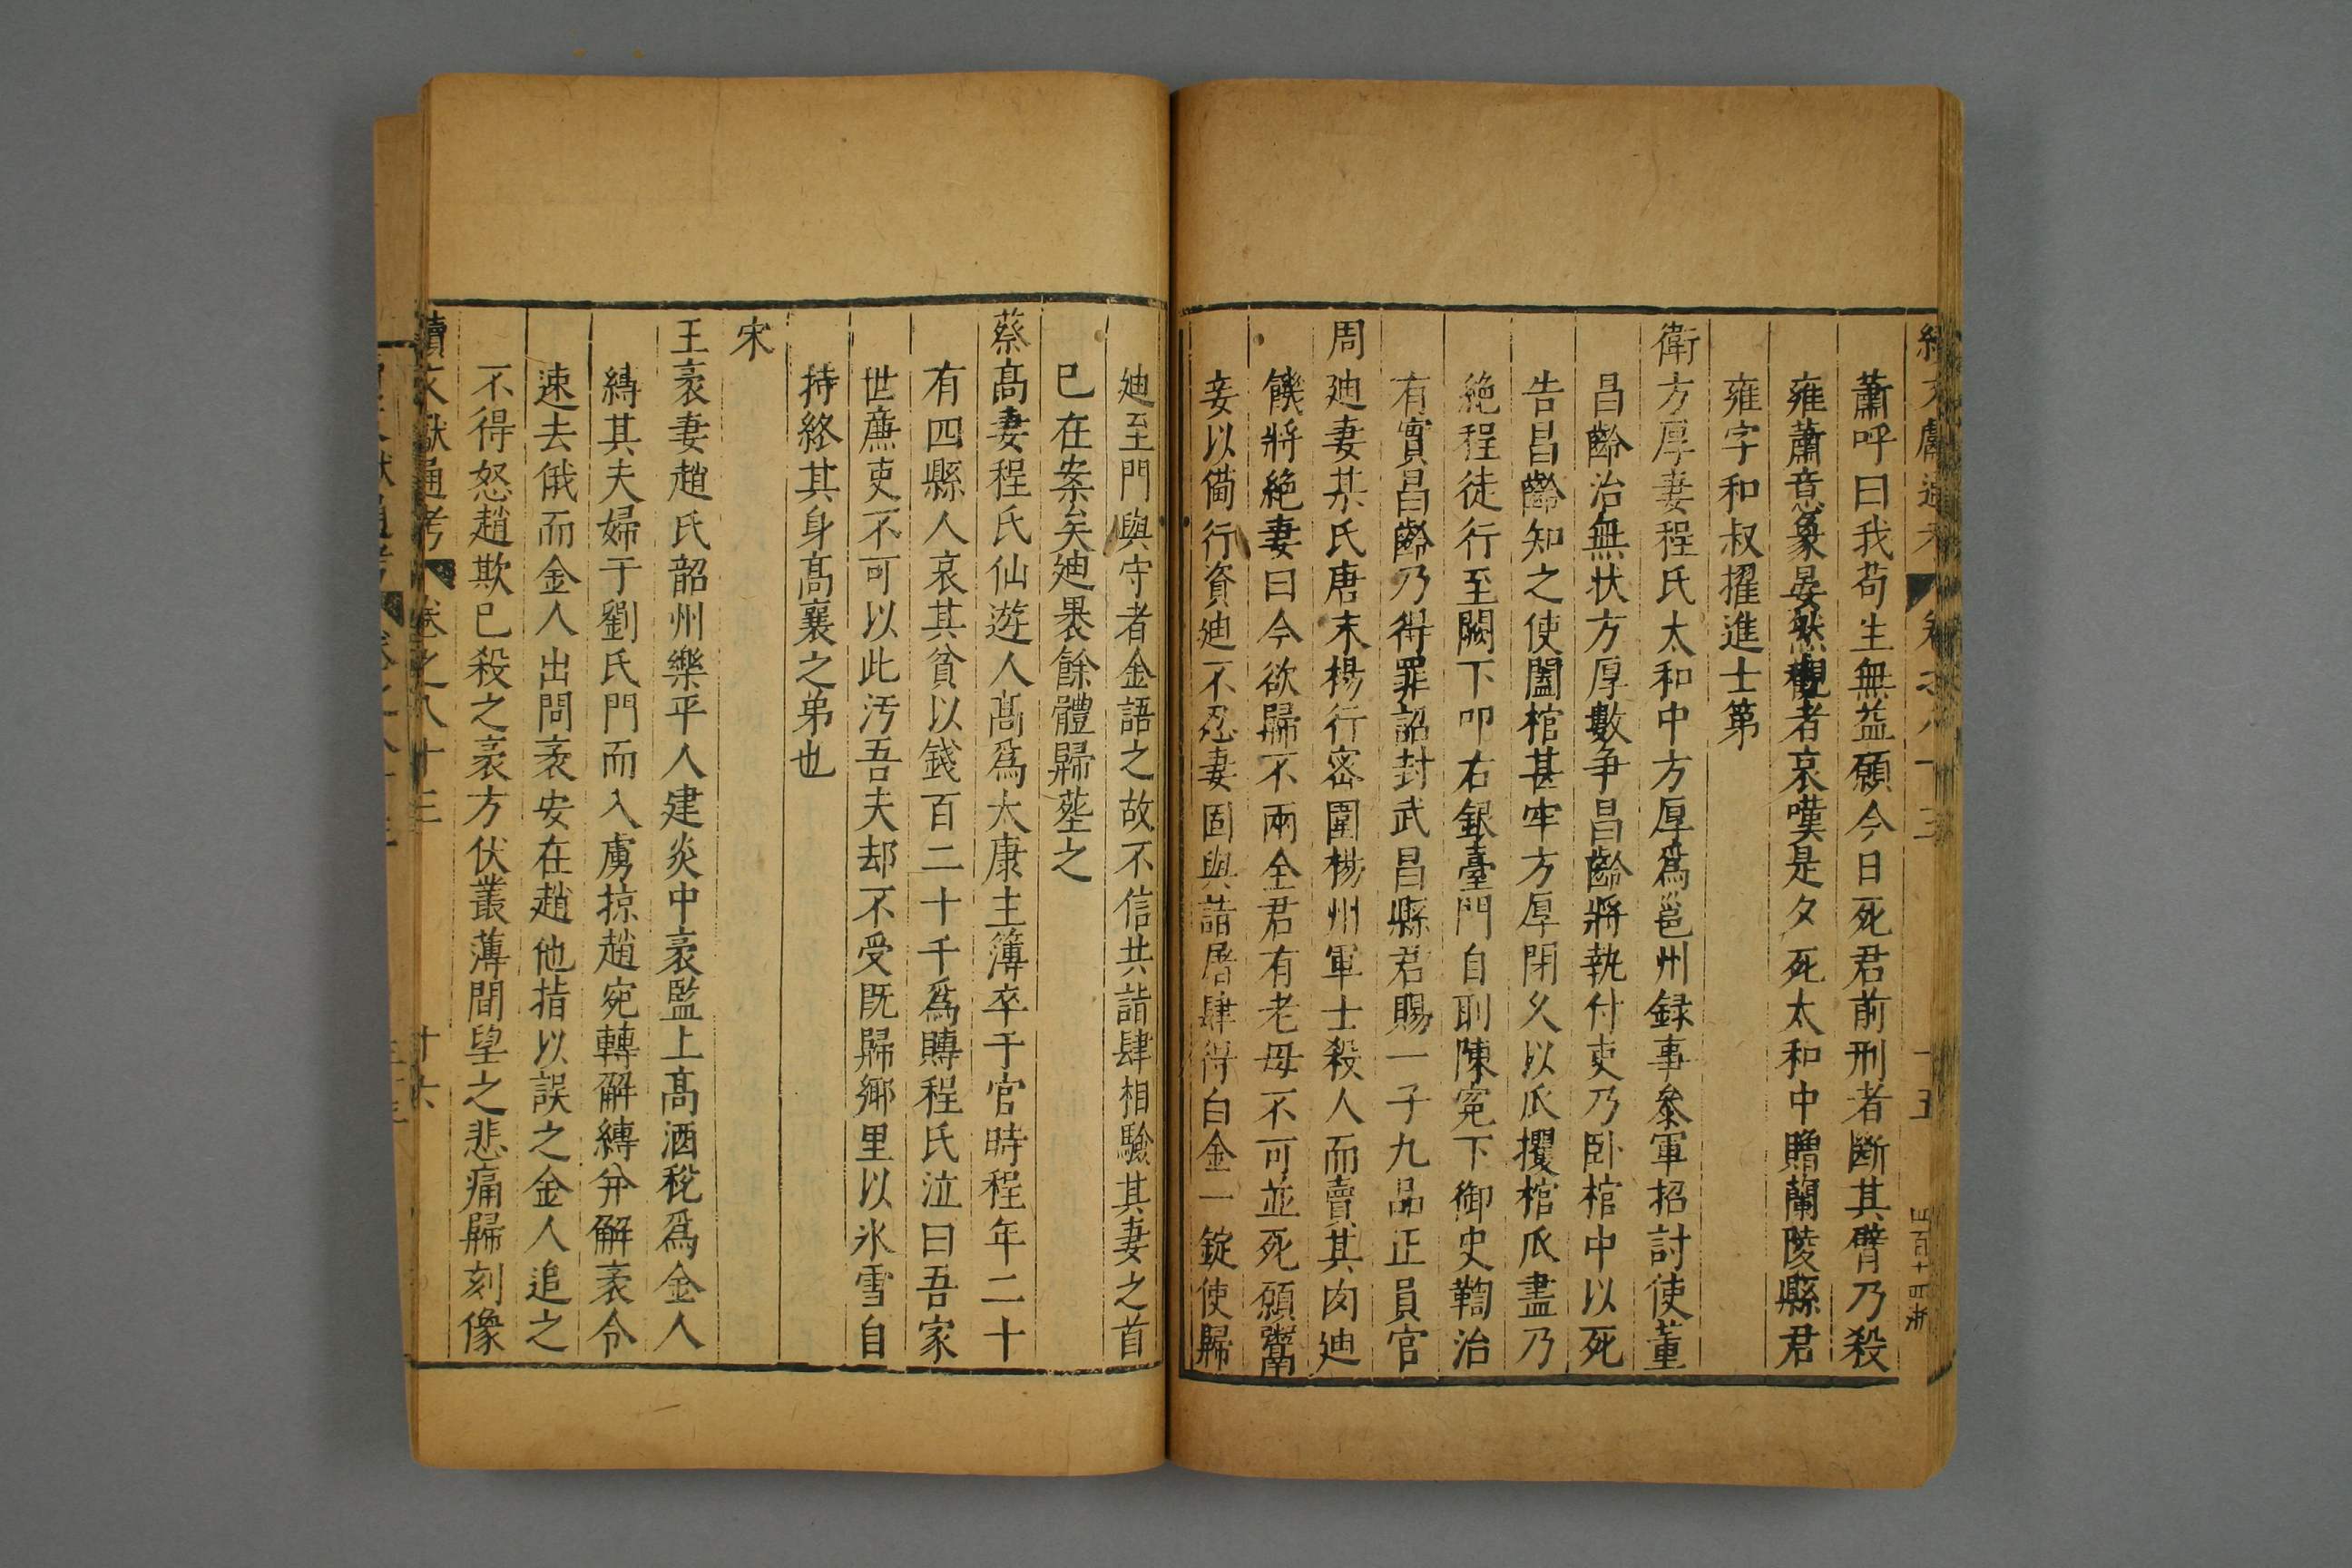 蕭呼曰我苟生無益願今日死君前刑者斷其臂乃殺
雍蕭意象晏然觀者哀嘆是夕死太和中贈蘭陵縣君
雍字和叔擢進士第
衛方厚妻程氏太和中方厚爲邕州録事叅軍招討使董
昌齡治無状方厚數争昌齡將執付吏乃卧棺中以死
告昌齡知之使闔棺甚牢方厚閉久以爪攫棺爪盡乃
絶程徒行至闕下叩右銀臺門自刵陳寃下御史鞫治
有實昌齡乃得罪詔封武昌縣君賜一子九品正員官
周廸妻某氏唐末楊行密圍楊州軍士殺人而賣其肉廸
饑將絶妻曰今欲歸不兩全君有老母不可並死願鬻
妾以備行資廸不忍妻固與詣屠肆得白金一錠使歸
廸至門與守者金語之故不信共詣肆相驗其妻之首
已在案矣廸褁餘體歸塟之
蔡髙妻程氏仙遊人髙爲太康主簿卒于官時程年二十
有四縣人哀其貧以錢百二十千爲賻程氏泣曰吾家
世亷吏不可以此汚吾夫却不受既歸鄉里以氷雪自
持終其身髙襄之弟也
宋
王袤妻趙氏韶州樂平人建炎中袤監上髙酒稅爲金人
縛其夫婦于劉氏門而入虜掠趙宛轉解縛并解袤令
速去俄而金人出問袤安在趙他指以誤之金人追之
不得怒趙欺巳殺之袤方伏叢薄間望之悲痛歸刻像
續文獻通考 卷之八十三 十六